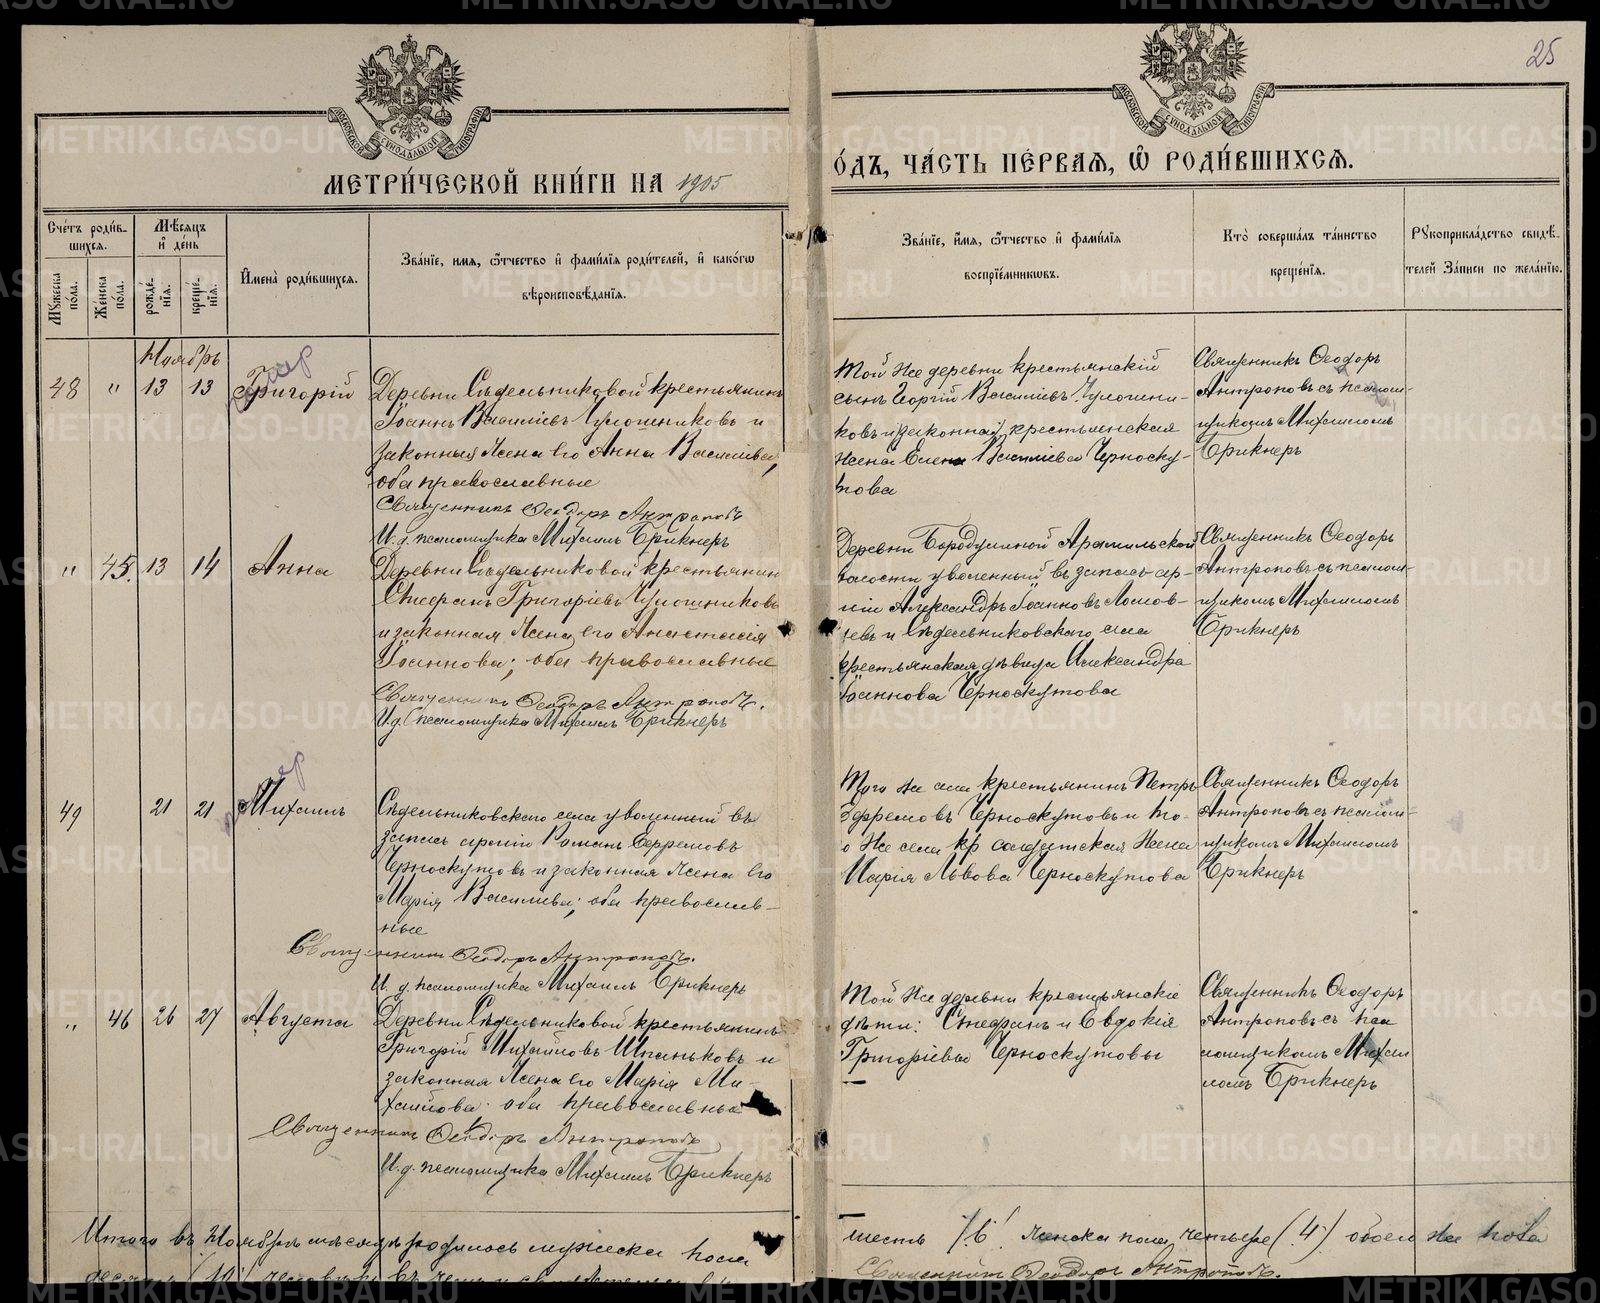 25
МЕТРИ́ЧЕСКОЙ КНИ́ГИ НА 1905
О́ДЪ, ЧА́СТЬ ПЕ́РВАЯ, Ѽ РОДИ́ВШИХСЯ.
Сче́тъ роди́в-
шихся.
Мѣ́сяцъ
и҆ де́нь
Му́жеска по́ла.
Же́нска по́ла.
рожде́-
нія.
креще́-
нія.
И҆мена̀ роди́вшихся.
Зва́ніе, имя, ѻ҆́тчество и҆ фами́лія роди́телей, и҆ како́гѡ
вѣроисповѣ́данія.
Зва́ніе, и҆́мя, ѻ҆́тчество и҆ фами́лія
воспріе́мниковъ.
Кто̀ соверша́лъ та́инство
креще́нія.
Рꙋкоприкла́дство свидѣ́-
телей за́писи по жела́нію.
Ноябрь
48 " 13 13 Григорій
Деревни Сѣдельниковой крестьянинъ
Іоаннъ Василіевъ Чулошниковъ и
законная жена его Анна Василіева,
оба православные
Священникъ Ѳеодоръ Антроповъ
И. д. псаломщика Михаилъ Брикнеръ
Той же деревни крестьянскій
сынъ Георгій Василіевъ Чулошни-
ковъ и законная крестьянская
жена Елена Василіева Черноску-
това
Священникъ Ѳеодоръ
Антроповъ съ псалом-
щикомъ Михаиломъ
Брикнеръ
" 45. 13 14 Анна
Деревни Сѣдельниковой крестьянин
Стефанъ Григоріевъ Чулошниковъ
и законная жена его Анастасія
Іоаннова; оба православные
Священникъ Ѳеодоръ Антроповъ.
И. д. псаломщика Михаилъ Брикнеръ
Деревни Бородулиной Арамильской
волости уволенный въ запасъ ар-
міи Александръ Іоанновъ
и Сѣдельниковскаго села
крестьянская дѣвица Александра
Іоаннова Черноскутова
Священникъ Ѳеодоръ
Антроповъ съ псалом-
щикомъ Михаиломъ
Брикнеръ
49 21 21 Михаилъ
Сѣдельниковскаго села уволенный въ
запасъ арміи Романъ Ефремовъ
Черноскутовъ и законная жена его
Марія Василіева; оба православ-
ные
Священникъ Ѳеодоръ Антроповъ.
И. д. псаломщика Михаилъ Брикнеръ
Того же села крестьянинъ Петръ
Ефремовъ Черноскутовъ и то-
о же села кр солдатская жена
Марія Львова Черноскутова
Священникъ Ѳеодоръ
Антроповъ съ псалом-
щикомъ Михаиломъ
Брикнеръ
" 46 26 27 Августа
Деревни Сѣдельниковой крестьянинъ
Григорій Михайловъ Шпаньковъ и
законная жена его Марія Ми-
хайлова; оба православные
Священникъ Ѳеодоръ Антроповъ
И. д. псаломщика Михаилъ Брикнеръ
Той же деревни крестьянскіе
дѣти: Стефанъ и Евдокія
Григоріевы Черноскутовы
Священникъ Ѳеодоръ
Антроповъ съ пса
ломщикомъ Михаи
ломъ Брикнеръ
Итого въ Ноябрѣ мѣсяцѣ родилось мужеска пола
шесть /6/ женска пола четыре (4) обоего же пола
десять (10) человѣкъ
Священникъ Ѳеодоръ Антроповъ.
METRIKI.GASO-URAL.RU